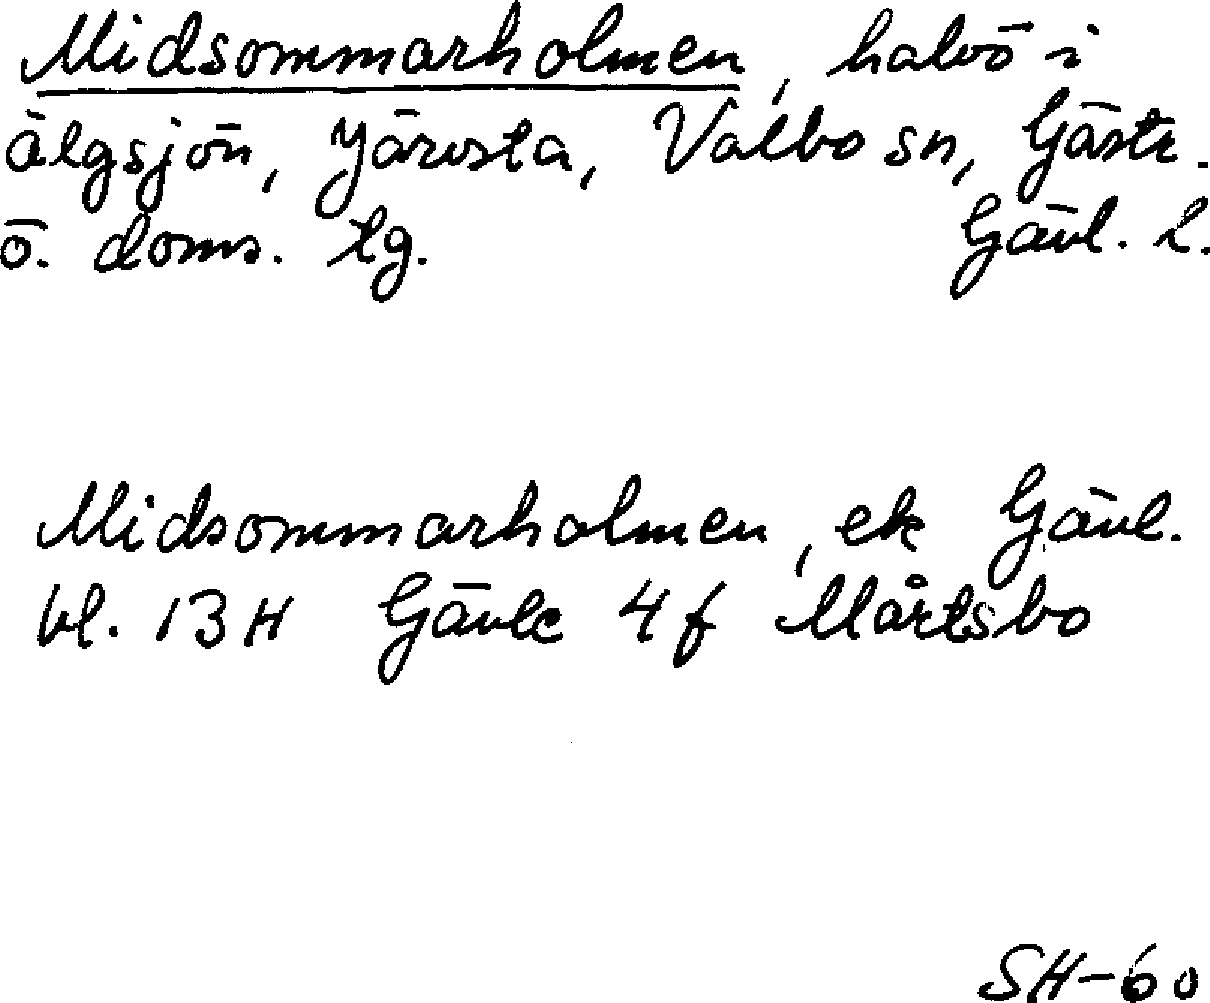 Midsommarholmen, halvö i
Älgsjön, Järvsta, Valbo sn, Gästr.
ö. doms. tg. Gävl. l.
Midsommarholmen, ek Gävl.
bl. 13 H Gävle 4 f Mårtsbo
SH-60